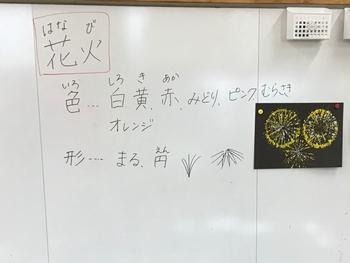 はな び
花火
いろ しろ き あか
色…白黄、赤、みどり、ピンク、むらさき
オレンジ
えん
形…. まる、円